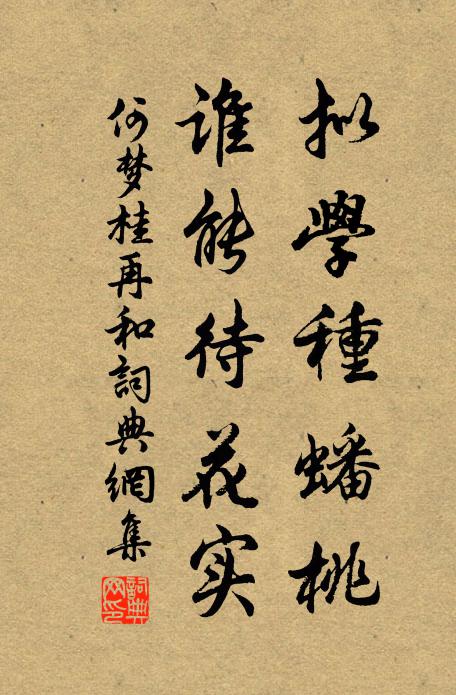 拟學種蟠桃
谁能待花实
何梦桂再和詞典網集
詞典网印